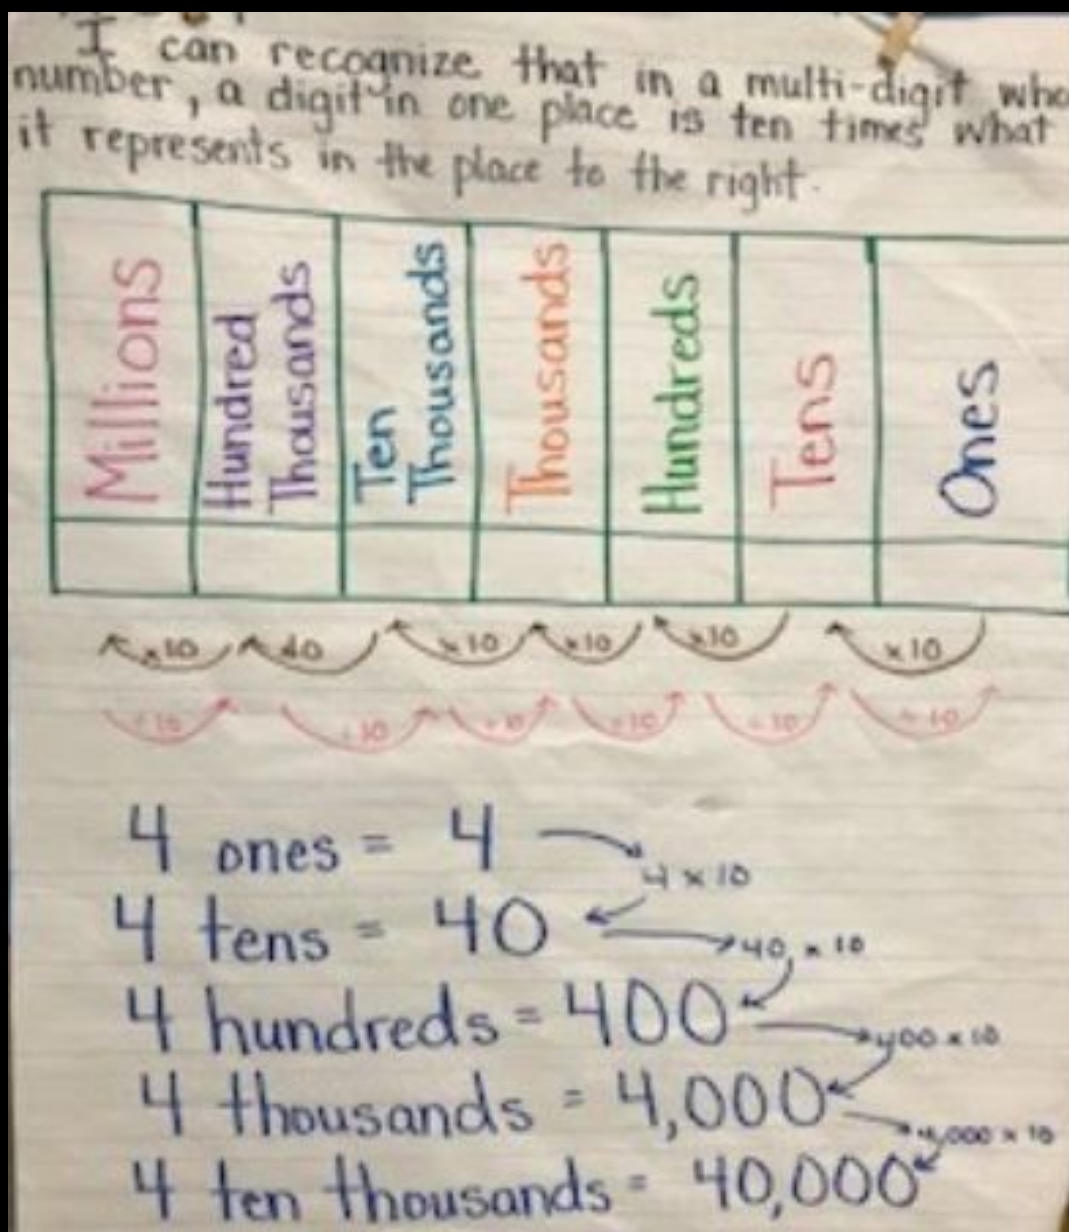 I can recognize that in a multi-digit
number, a digit in one place is ten times what
it represents in the place to the right.
Millions
Hundred
Thousands
Ten
Thousands
Thousands
Hundreds
Tens
Ones
×10 ×10 ×10 ×10 ×10 ×10
÷10 ÷10 ÷10 ÷10 ÷10 ÷10
4 ones = 4
4 × 10
4 tens = 40
40 × 10
4 hundreds = 400
400 × 10
4 thousands = 4,000
4,000 × 10
4 ten thousands = 40,000